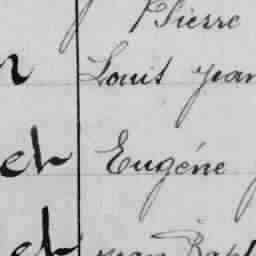 Pierre
n Louis Jean
et Eugéne
et Jean Bapt